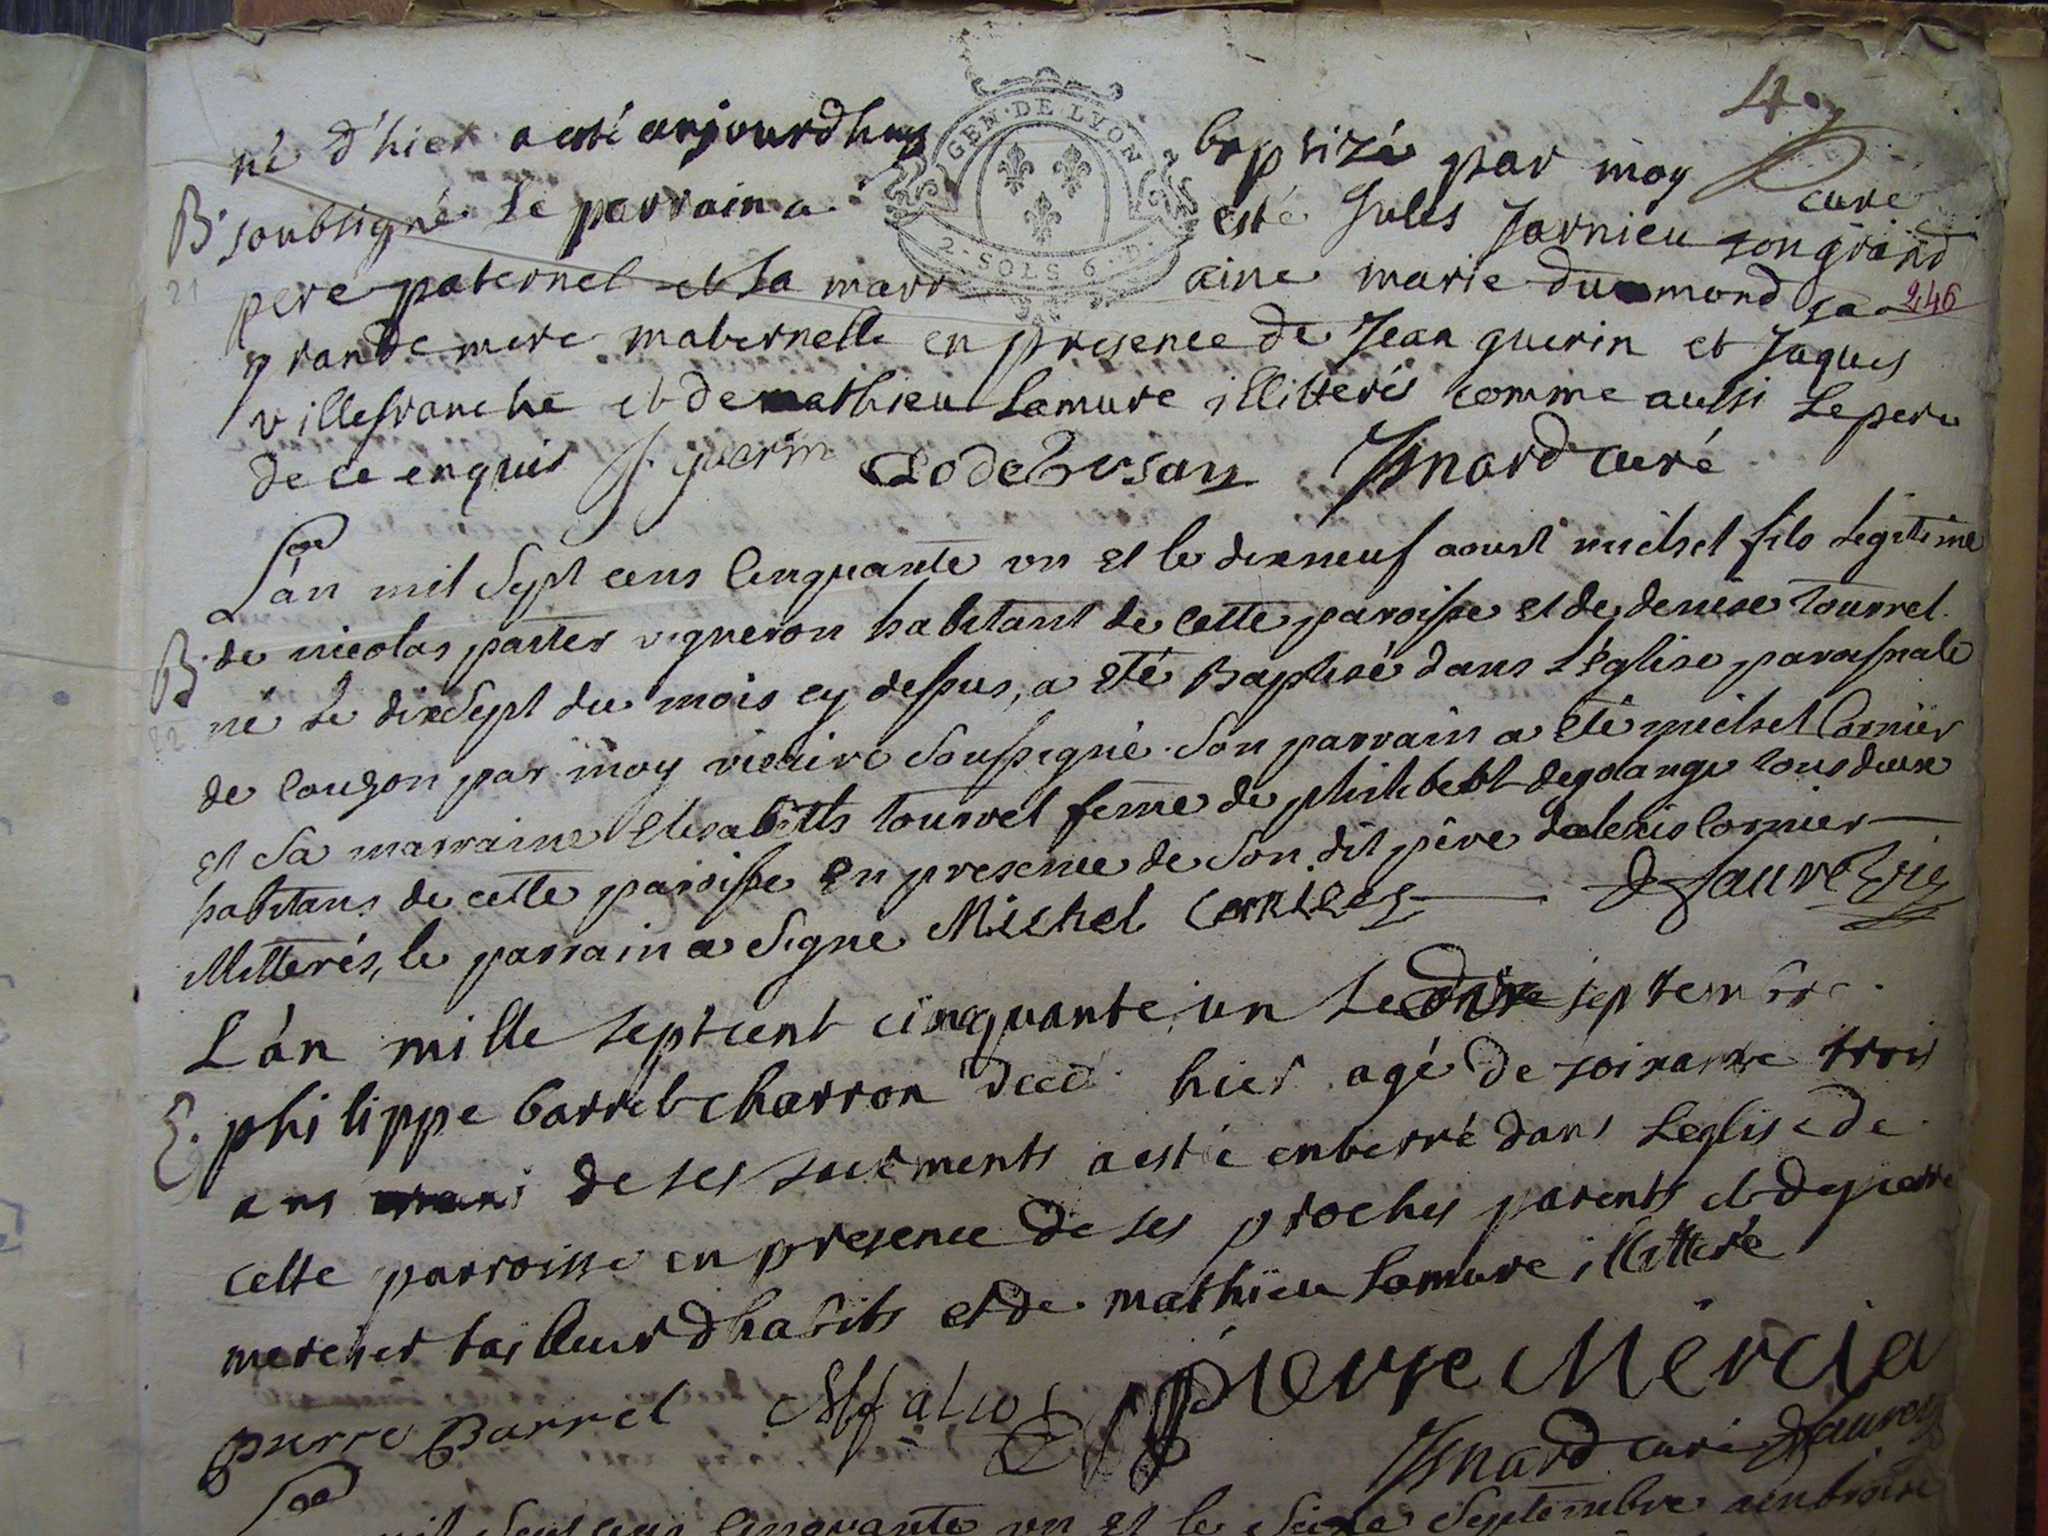 4.
GEN·DE LYON
2·SOLS 6·D·
né d'hier a esté aujourdhuy baptizé par moy curé
B. soubsigné le parrain a esté Jules Jarnieu son grand
21
pere paternel et la marraine marie dumond sa
246
grande mere maternelle en presence de Jean guerin et Jaques
villefranche et de mathieu Lamure illitterés comme aussi le pere
de ce enquis J. guerin Isnard curé
L'an mil Sept cens Cinquante un et le dixneuf aoust michel fils Legitime
de nicolas parter vigneron habitant de cette paroisse et de denise tourrel
B.
né le dixSept du mois cy dessus, a eté Baptisé dans L'Eglise paroissiale
22
de Couzon par moy vicaire Soussigné. Son parrain a eté michel Cornier
et Sa marraine Elisabeth tourrel feme de philibert degrange tous deux
habitans de cette paroisse en presence de Son dit père d'alexis Cornier
illitterés, le parrain a Signé Michel Cornier
L'an mille septcent cinquante un le dix septembre
E. philippe barret charron decd hier agé de soixante trois
ans muni de ses sacrements a esté enterré dans Leglise de
cette parroisse en presence de ses proches parents et de pierre
mercier tailleur dhabits et de mathieu Lamure illitteré
pierre Barrel pierre Mercia
Isnard curé
mil Sept cens Cinquante un et le Seize Septembre